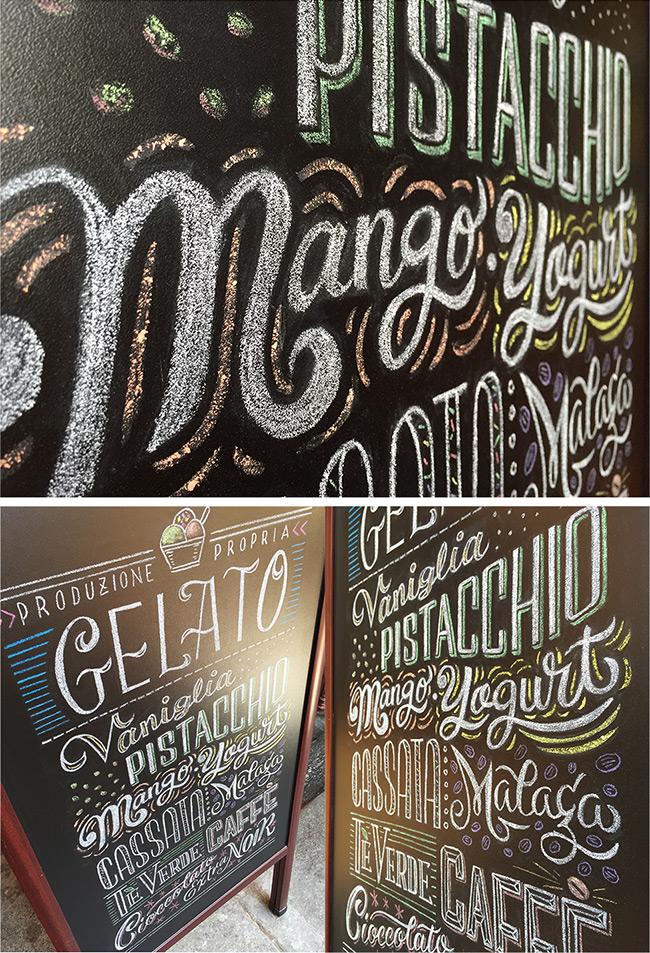 PISTACCHIO
Mango · Yogurt
CATA : Malaça
PRODUZIONE PROPRIA
GELATO
Vaniglia
PISTACCHIO
Mango · Yogurt
CASSATA : Malaça
TÈ VERDE CAFFÈ
Cioccolato Extra NOIR
GEL
Vaniglia
PISTACCHIO
Mango · Yogurt
CASSATA : Malaça
TÈ VERDE CAFFÈ
Cioccolato